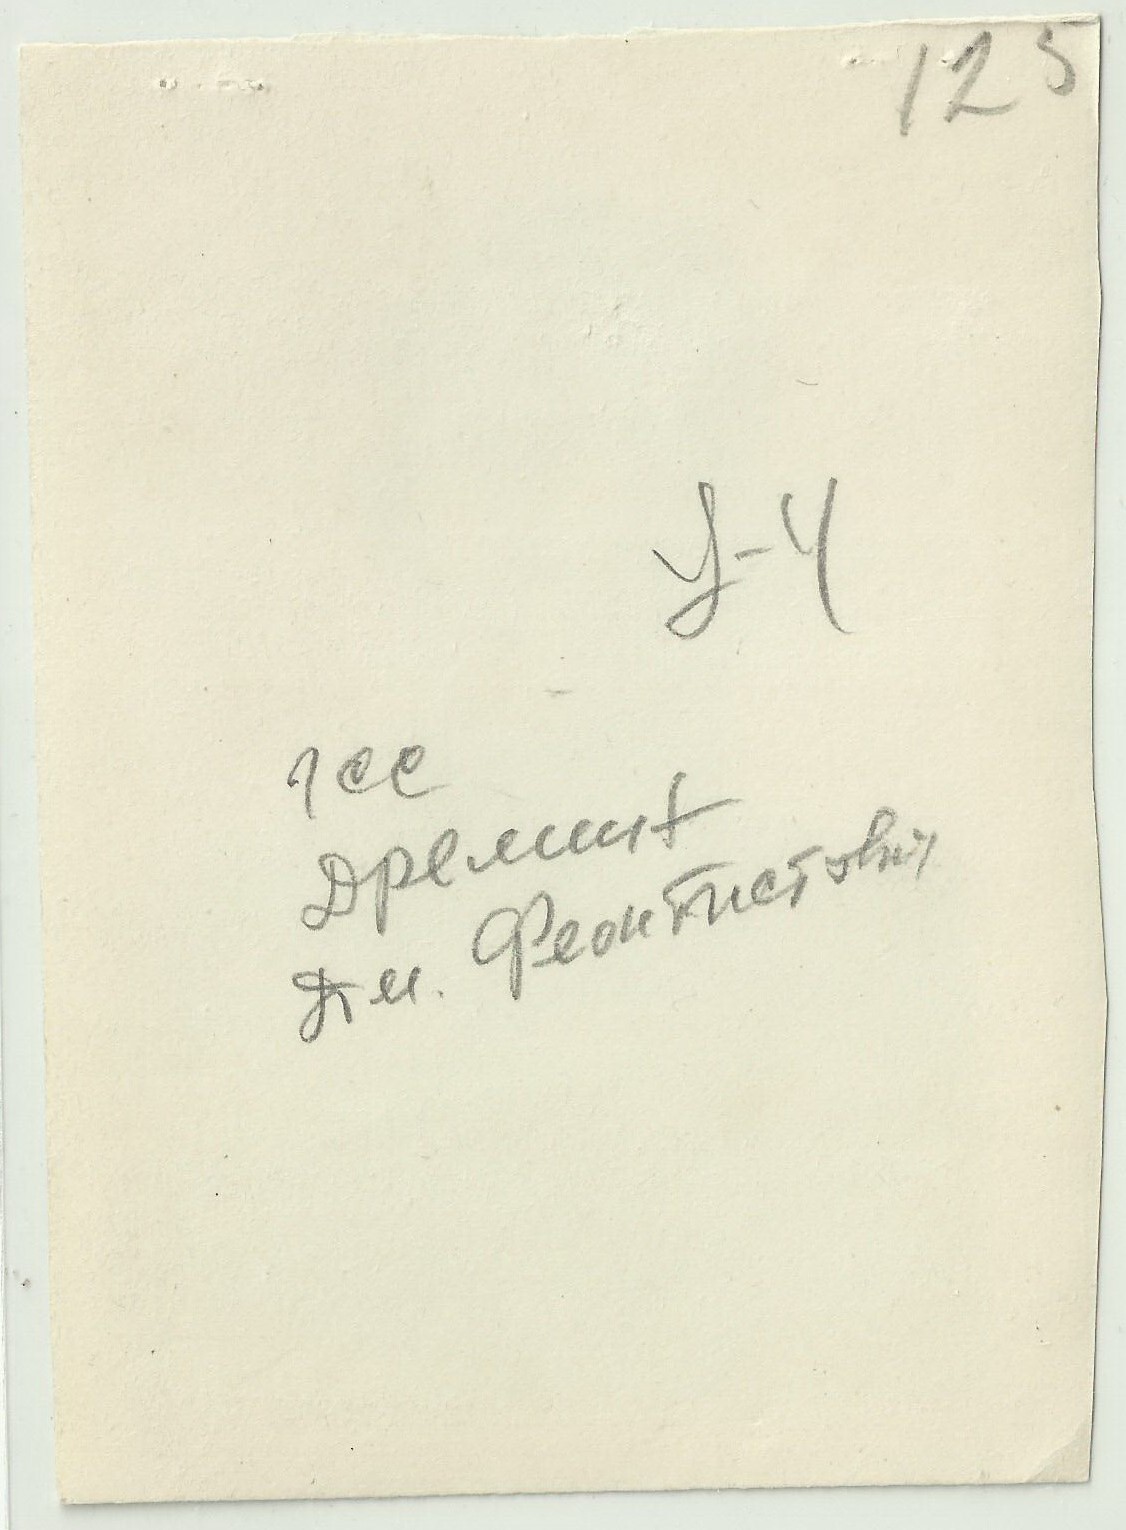 125
У-4
ГСС
Дремин
Дм. Феоктистович